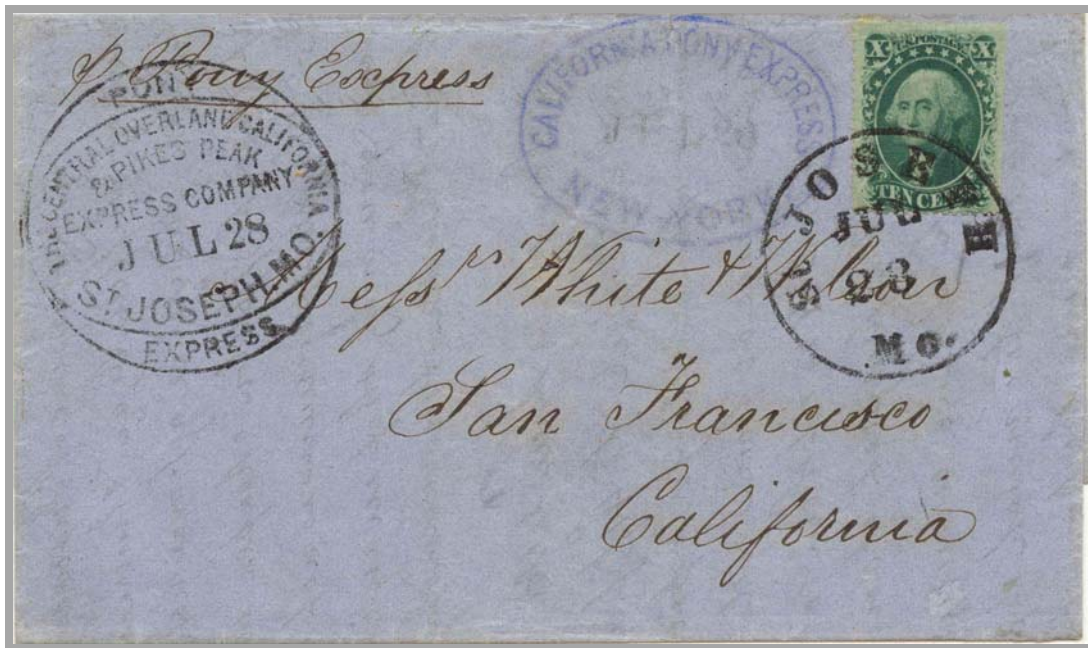 ℘ Pony Express
PONY
THE CENTRAL OVERLAND CALIFORNIA
& PIKES PEAK
EXPRESS COMPANY
JUL 28
ST JOSEPH. MO.
EXPRESS
CALIFORNIA PONY EXPRESS
NEW-YORK
U.S. POSTAGE
X X
TEN CENTS
ST JOSEPH
JUL
28
Mo.
Messrs White & Wilson
San Francisco
California